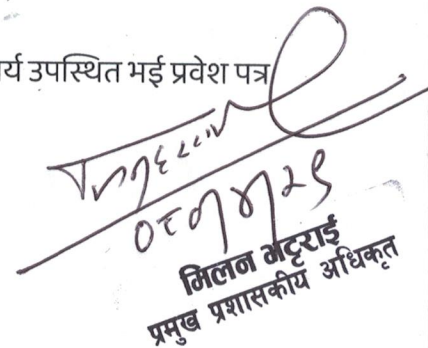 र्य उपस्थित भई प्रवेश पत्र
मिलन भट्टराई
प्रमुख प्रशासकीय अधिकृत